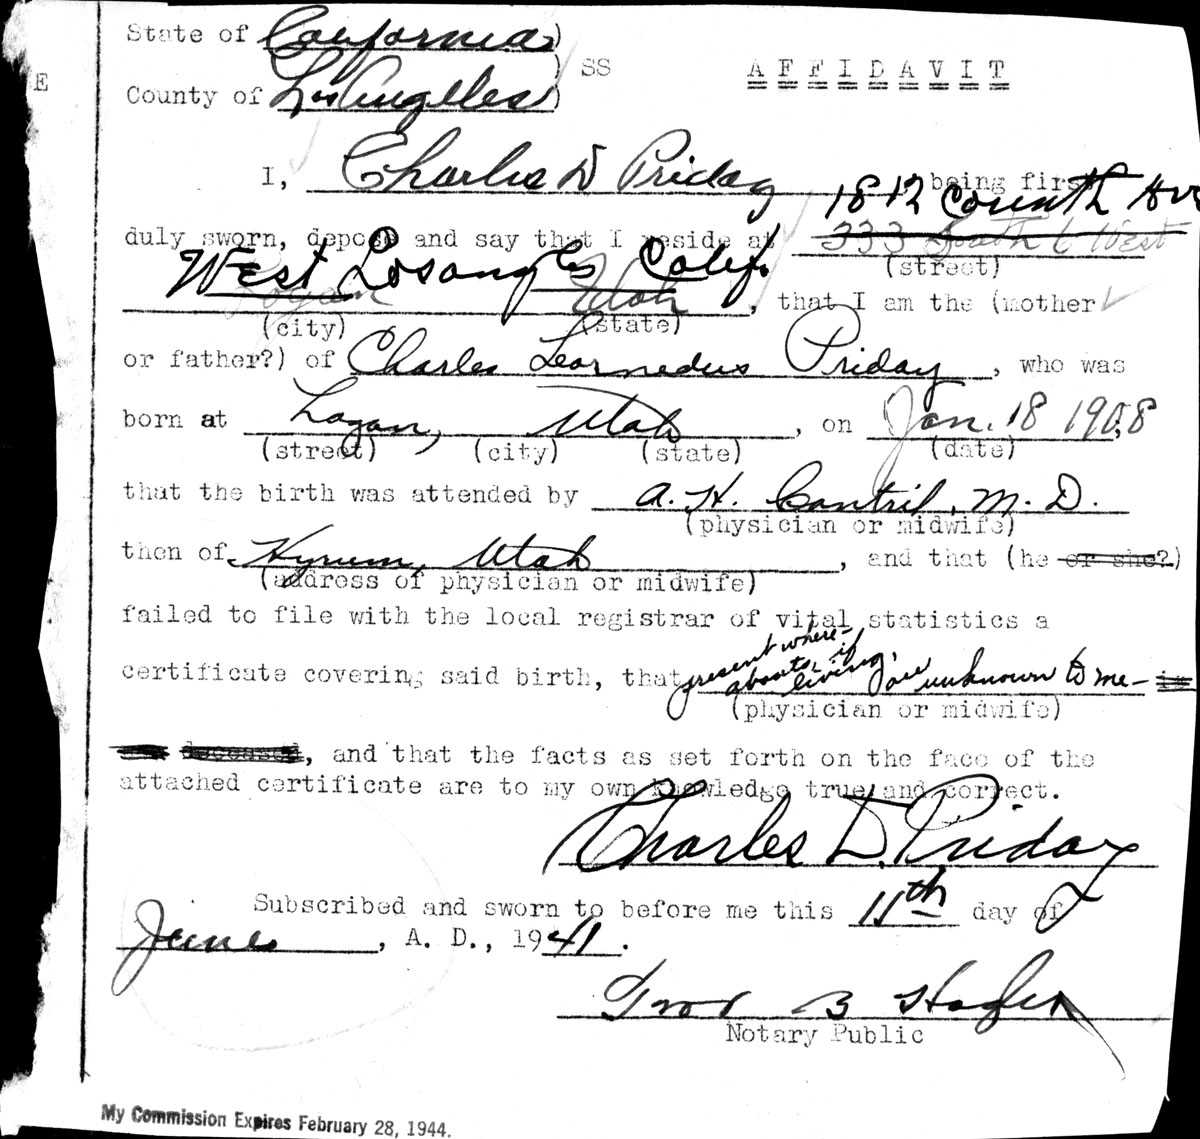 State of California )
) SS
A F F I D A V I T
E
County of Los Angeles )
I, Charles D Priday, being first
1812 Corinth Ave
duly sworn, depose and say that I reside at 333 South 6 West
(street)
West Los angles Calif.
Logan Utah, that I am the (mother
(city) (state)
or father?) of Charles Learnedus Priday, who was
born at Logan, Utah, on Jan. 18 1908
(street) (city) (state) (date)
that the birth was attended by A. H. Cantril, M. D.
(physician or midwife)
then of Hyrum, Utah, and that (he or she?)
(address of physician or midwife)
failed to file with the local registrar of vital statistics a
present where-
abouts, if
living,
certificate covering said birth, that are unknown to me- is
(physician or midwife)
now deceased, and that the facts as set forth on the face of the
attached certificate are to my own knowledge true and correct.
Charles D. Priday
Subscribed and sworn to before me this 11th day of
June, A. D., 1941.
B
Notary Public
My Commission Expires February 28, 1944.